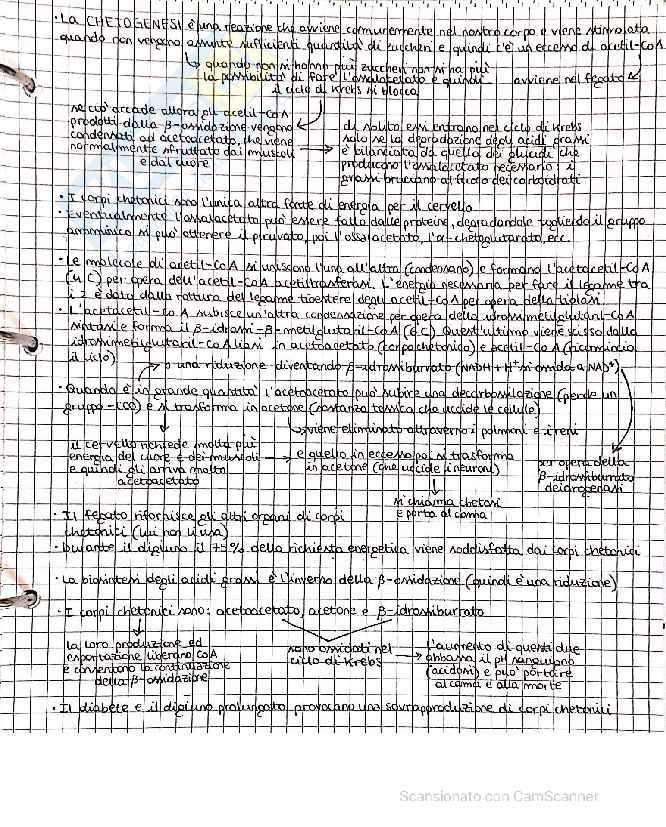 · La CHETOGENESI è una reazione che avviene comunemente nel nostro corpo e viene stimolata
quando non vengono assunte sufficienti quantità di zuccheri e quindi c'è un eccesso di acetil-CoA
quando non si hanno più zuccheri non si ha più
la possibilità di fare l'ossalacetato e quindi
il ciclo di Krebs si blocca
avviene nel fegato
se ciò accade allora gli acetil-CoA
prodotti dalla β-ossidazione vengono
condensati ad acetoacetato, che viene
normalmente sfruttato dai muscoli
e dal cuore
di solito essi entrano nel ciclo di Krebs
solo se la degradazione degli acidi grassi
è bilanciata da quella dei glucidi che
producono l'ossalacetato necessario: i
grassi bruciano al fuoco dei carboidrati
· I corpi chetonici sono l'unica altra fonte di energia per il cervello
· Eventualmente l'ossalacetato può essere fatto dalle proteine, degradandole togliendo il gruppo
amminico si può ottenere il piruvato, poi l'ossalacetato, l'α-chetoglutarato, ecc.
· Le molecole di acetil-CoA si uniscono l'una all'altra (condensano) e formano l'acetoacetil-CoA
(4 C) per opera dell'acetil-CoA acetiltrasferasi. L'energia necessaria per fare il legame tra
i 2 è data dalla rottura del legame tioestere degli acetil-CoA per opera della tiolasi
· L'acetoacetil-CoA subisce un'altra condensazione per opera della idrossimetilglutaril-CoA
sintasi e forma il β-idrossi-β-metilglutaril-CoA (6 C). Quest'ultimo viene scisso dalla
idrossimetilglutaril-CoA liasi in acetoacetato (corpo chetonico) e acetil-CoA (ricomincia
il ciclo)
o una riduzione diventando β-idrossiburrato (NADH + H⁺ si ossida a NAD⁺)
· Quando è in grande quantità l'acetoacetato può subire una decarbossilazione (perde un
gruppo -COO) e si trasforma in acetone (sostanza tossica che uccide le cellule)
viene eliminato attraverso i polmoni e i reni
il cervello richiede molta più
energia del cuore e dei muscoli
e quindi gli arriva molto
acetoacetato
e quello in eccesso poi si trasforma
in acetone (che uccide i neuroni)
per opera della
β-idrossiburrato
deidrogenasi
si chiama chetosi
e porta al coma
· Il fegato rifornisce gli altri organi di corpi
chetonici (lui non li usa)
· Durante il digiuno il 75% della richiesta energetica viene soddisfatta dai corpi chetonici
· La biosintesi degli acidi grassi è l'inverso della β-ossidazione (quindi è una riduzione)
· I corpi chetonici sono: acetoacetato, acetone e β-idrossiburrato
la loro produzione ed
esportazione liberano CoA
e consentono la continuazione
della β-ossidazione
sono ossidati nel
ciclo di Krebs
l'aumento di questi due
abbassa il pH sanguigno
(acidosi) e può portare
al coma e alla morte
· Il diabete e il digiuno prolungato provocano una sovrapproduzione di corpi chetonici
Scansionato con CamScanner